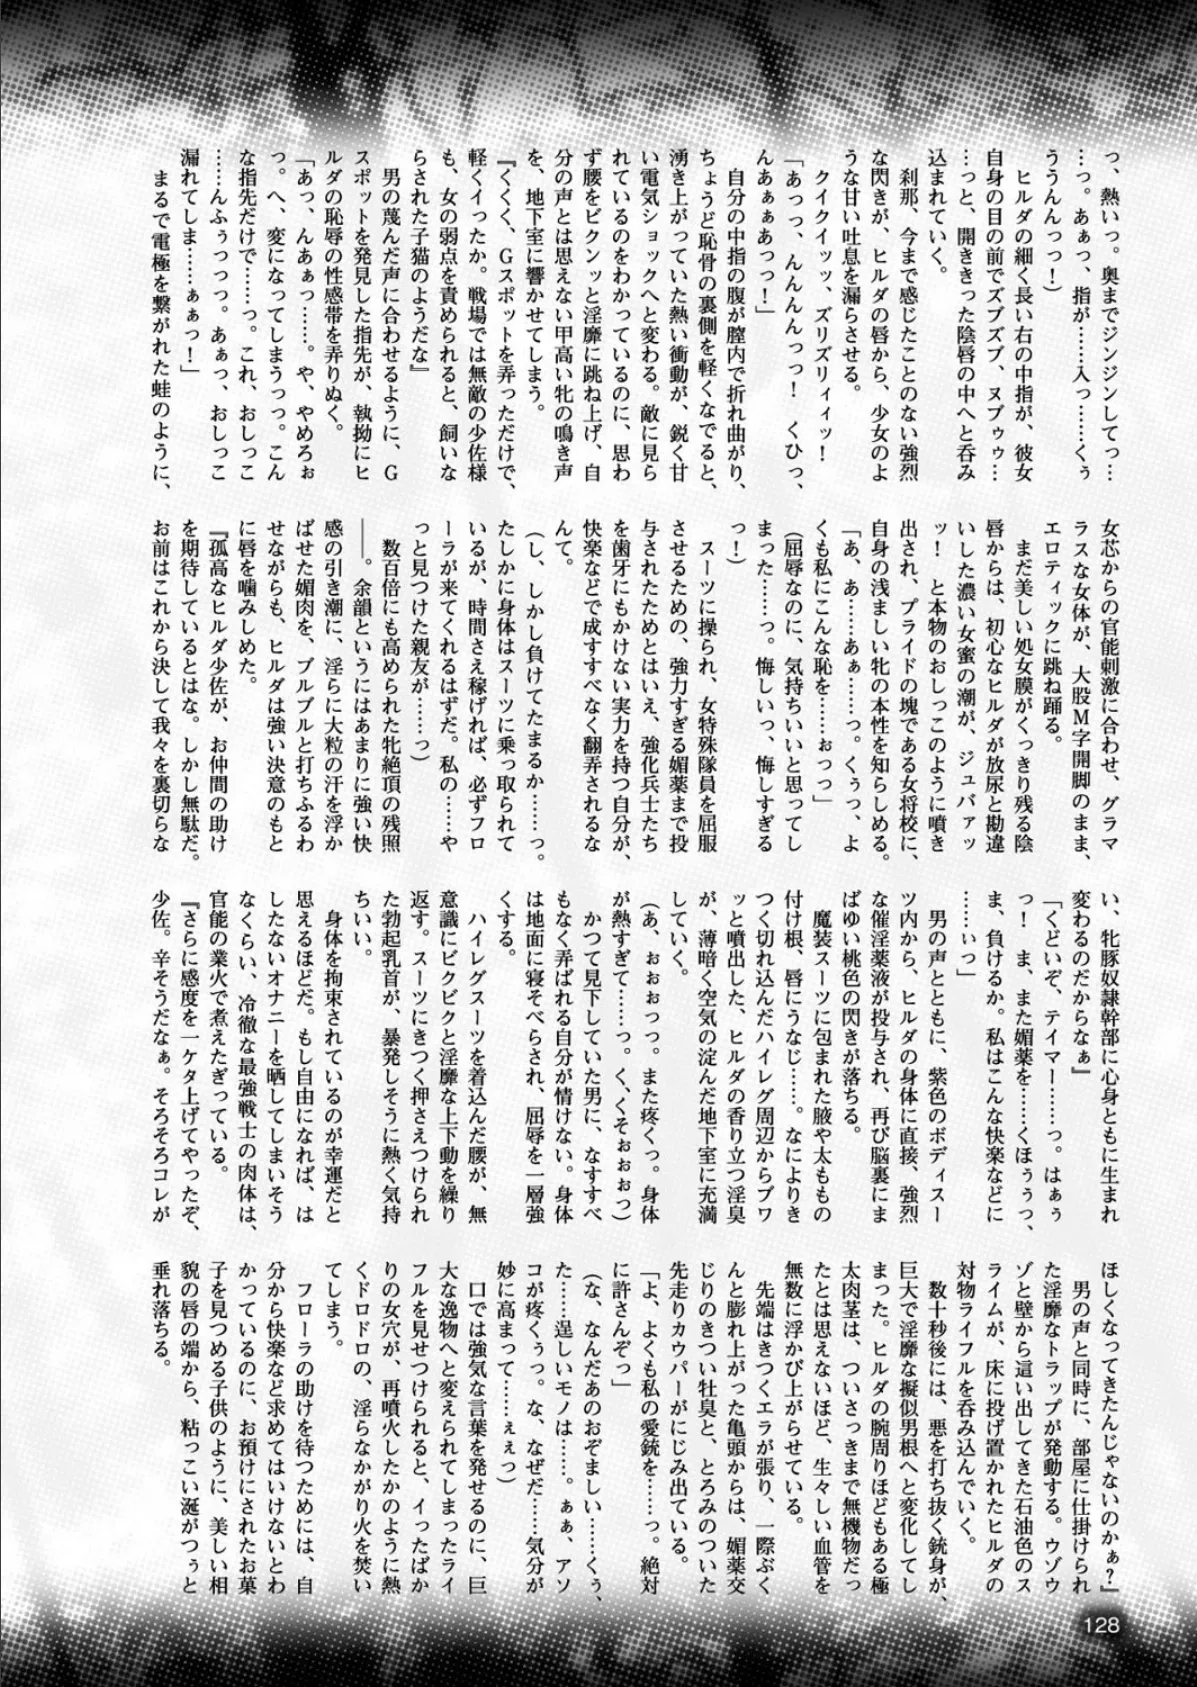 っ、熱いっ。奥までジンジンしてっ…
…っ。あぁっ、指が……入っ……くぅ
ううんんっっ！）
ヒルダの細く長い右の中指が、彼女
自身の目の前でズブズブ、ヌブゥゥ…
…っと、開ききった陰唇の中へと呑み
込まれていく。
刹那、今まで感じたことのない強烈
な閃きが、ヒルダの唇から、少女のよ
うな甘い吐息を漏らさせる。
クイクイッッ、ズリズリィィッ！
「あっっ、んんんんっっ！　くひっ、
んあぁぁあっっ！」
自分の中指の腹が膣内で折れ曲がり、
ちょうど恥骨の裏側を軽くなでると、
湧き上がっていた熱い衝動が、鋭く甘
い電気ショックへと変わる。敵に見ら
れているのをわかっているのに、思わ
ず腰をビクンッと淫靡に跳ね上げ、自
分の声とは思えない甲高い牝の鳴き声
を、地下室に響かせてしまう。
『くくく、Ｇスポットを弄っただけで、
軽くイったか。戦場では無敵の少佐様
も、女の弱点を責められると、飼いな
らされた子猫のようだな』
男の蔑んだ声に合わせるように、Ｇ
スポットを発見した指先が、執拗にヒ
ルダの恥辱の性感帯を弄りぬく。
「あっ、んあぁっ……。や、やめろぉ
っ。へ、変になってしまうっっ。こん
な指先だけで……っ。これ、おしっこ
……んふぅっっっ。あぁっ、おしっこ
漏れてしま……ぁぁっ！」
まるで電極を繋がれた蛙のように、
女芯からの官能刺激に合わせ、グラマ
ラスな女体が、大股Ｍ字開脚のまま、
エロティックに跳ね踊る。
まだ美しい処女膜がくっきり残る陰
唇からは、初心なヒルダが放尿と勘違
いした濃い女蜜の潮が、ジュバァッ
ッ！　と本物のおしっこのように噴き
出され、プライドの塊である女将校に、
自身の浅ましい牝の本性を知らしめる。
「あ、あ……あぁ……っ。くぅっ、よ
くも私にこんな恥を……ぉっっ」
（屈辱なのに、気持ちいいと思ってし
まった……っ。悔しいっ、悔しすぎる
っ！）
スーツに操られ、女特殊隊員を屈服
させるための、強力すぎる媚薬まで投
与されたためとはいえ、強化兵士たち
を歯牙にもかけない実力を持つ自分が、
快楽などで成すすべなく翻弄されるな
んて。
（し、しかし負けてたまるか……っ。
たしかに身体はスーツに乗っ取られて
いるが、時間さえ稼げれば、必ずフロ
ーラが来てくれるはずだ。私の……や
っと見つけた親友が……っ）
数百倍にも高められた牝絶頂の残照
――。余韻というにはあまりに強い快
感の引き潮に、淫らに大粒の汗を浮か
ばせた媚肉を、ブルブルと打ちふるわ
せながらも、ヒルダは強い決意のもと
に唇を噛みしめた。
『孤高なヒルダ少佐が、お仲間の助け
を期待しているとはな。しかし無駄だ。
お前はこれから決して我々を裏切らな
い、牝豚奴隷幹部に心身ともに生まれ
変わるのだからなぁ』
「くどいぞ、テイマー……っ。はぁぅ
っ！　ま、また媚薬を……くほぅぅっ、
ま、負けるか。私はこんな快楽などに
……ぃっ」
男の声とともに、紫色のボディスー
ツ内から、ヒルダの身体に直接、強烈
な催淫薬液が投与され、再び脳裏にま
ばゆい桃色の閃きが落ちる。
魔装スーツに包まれた腋や太ももの
付け根、唇にうなじ……。なによりき
つく切れ込んだハイレグ周辺からブワ
ッと噴出した、ヒルダの香り立つ淫臭
が、薄暗く空気の淀んだ地下室に充満
していく。
（あ、ぉぉぉっっ。また疼くっ。身体
が熱すぎて……っ。く、くそぉぉぉっ）
かつて見下していた男に、なすすべ
もなく弄ばれる自分が情けない。身体
は地面に寝そべらされ、屈辱を一層強
くする。
ハイレグスーツを着込んだ腰が、無
意識にビクビクと淫靡な上下動を繰り
返す。スーツにきつく押さえつけられ
た勃起乳首が、暴発しそうに熱く気持
ちいい。
身体を拘束されているのが幸運だと
思えるほどだ。もし自由になれば、は
したないオナニーを晒してしまいそう
なくらい、冷徹な最強戦士の肉体は、
官能の業火で煮えたぎっている。
『さらに感度を一ケタ上げてやったぞ、
少佐。辛そうだなぁ。そろそろコレが
ほしくなってきたんじゃないのかぁ？』
男の声と同時に、部屋に仕掛けられ
た淫靡なトラップが発動する。ウゾウ
ゾと壁から這い出してきた石油色のス
ライムが、床に投げ置かれたヒルダの
対物ライフルを呑み込んでいく。
数十秒後には、悪を打ち抜く銃身が、
巨大で淫靡な擬似男根へと変化してし
まった。ヒルダの腕周りほどもある極
太肉茎は、ついさっきまで無機物だっ
たとは思えないほど、生々しい血管を
無数に浮かび上がらせている。
先端はきつくエラが張り、一際ぶく
んと膨れ上がった亀頭からは、媚薬交
じりのきつい牡臭と、とろみのついた
先走りカウパーがにじみ出ている。
「よ、よくも私の愛銃を……っ。絶対
に許さんぞっ」
（な、なんだあのおぞましい……くぅ、
た……逞しいモノは……。ぁぁ、アソ
コが疼くぅっ。な、なぜだ……気分が
妙に高まって……ぇぇっ）
口では強気な言葉を発せるのに、巨
大な逸物へと変えられてしまったライ
フルを見せつけられると、イったばか
りの女穴が、再噴火したかのように熱
くドロドロの、淫らなかがり火を焚い
てしまう。
フローラの助けを待つためには、自
分から快楽など求めてはいけないとわ
かっているのに、お預けにされたお菓
子を見つめる子供のように、美しい相
貌の唇の端から、粘っこい涎がつぅと
垂れ落ちる。
128